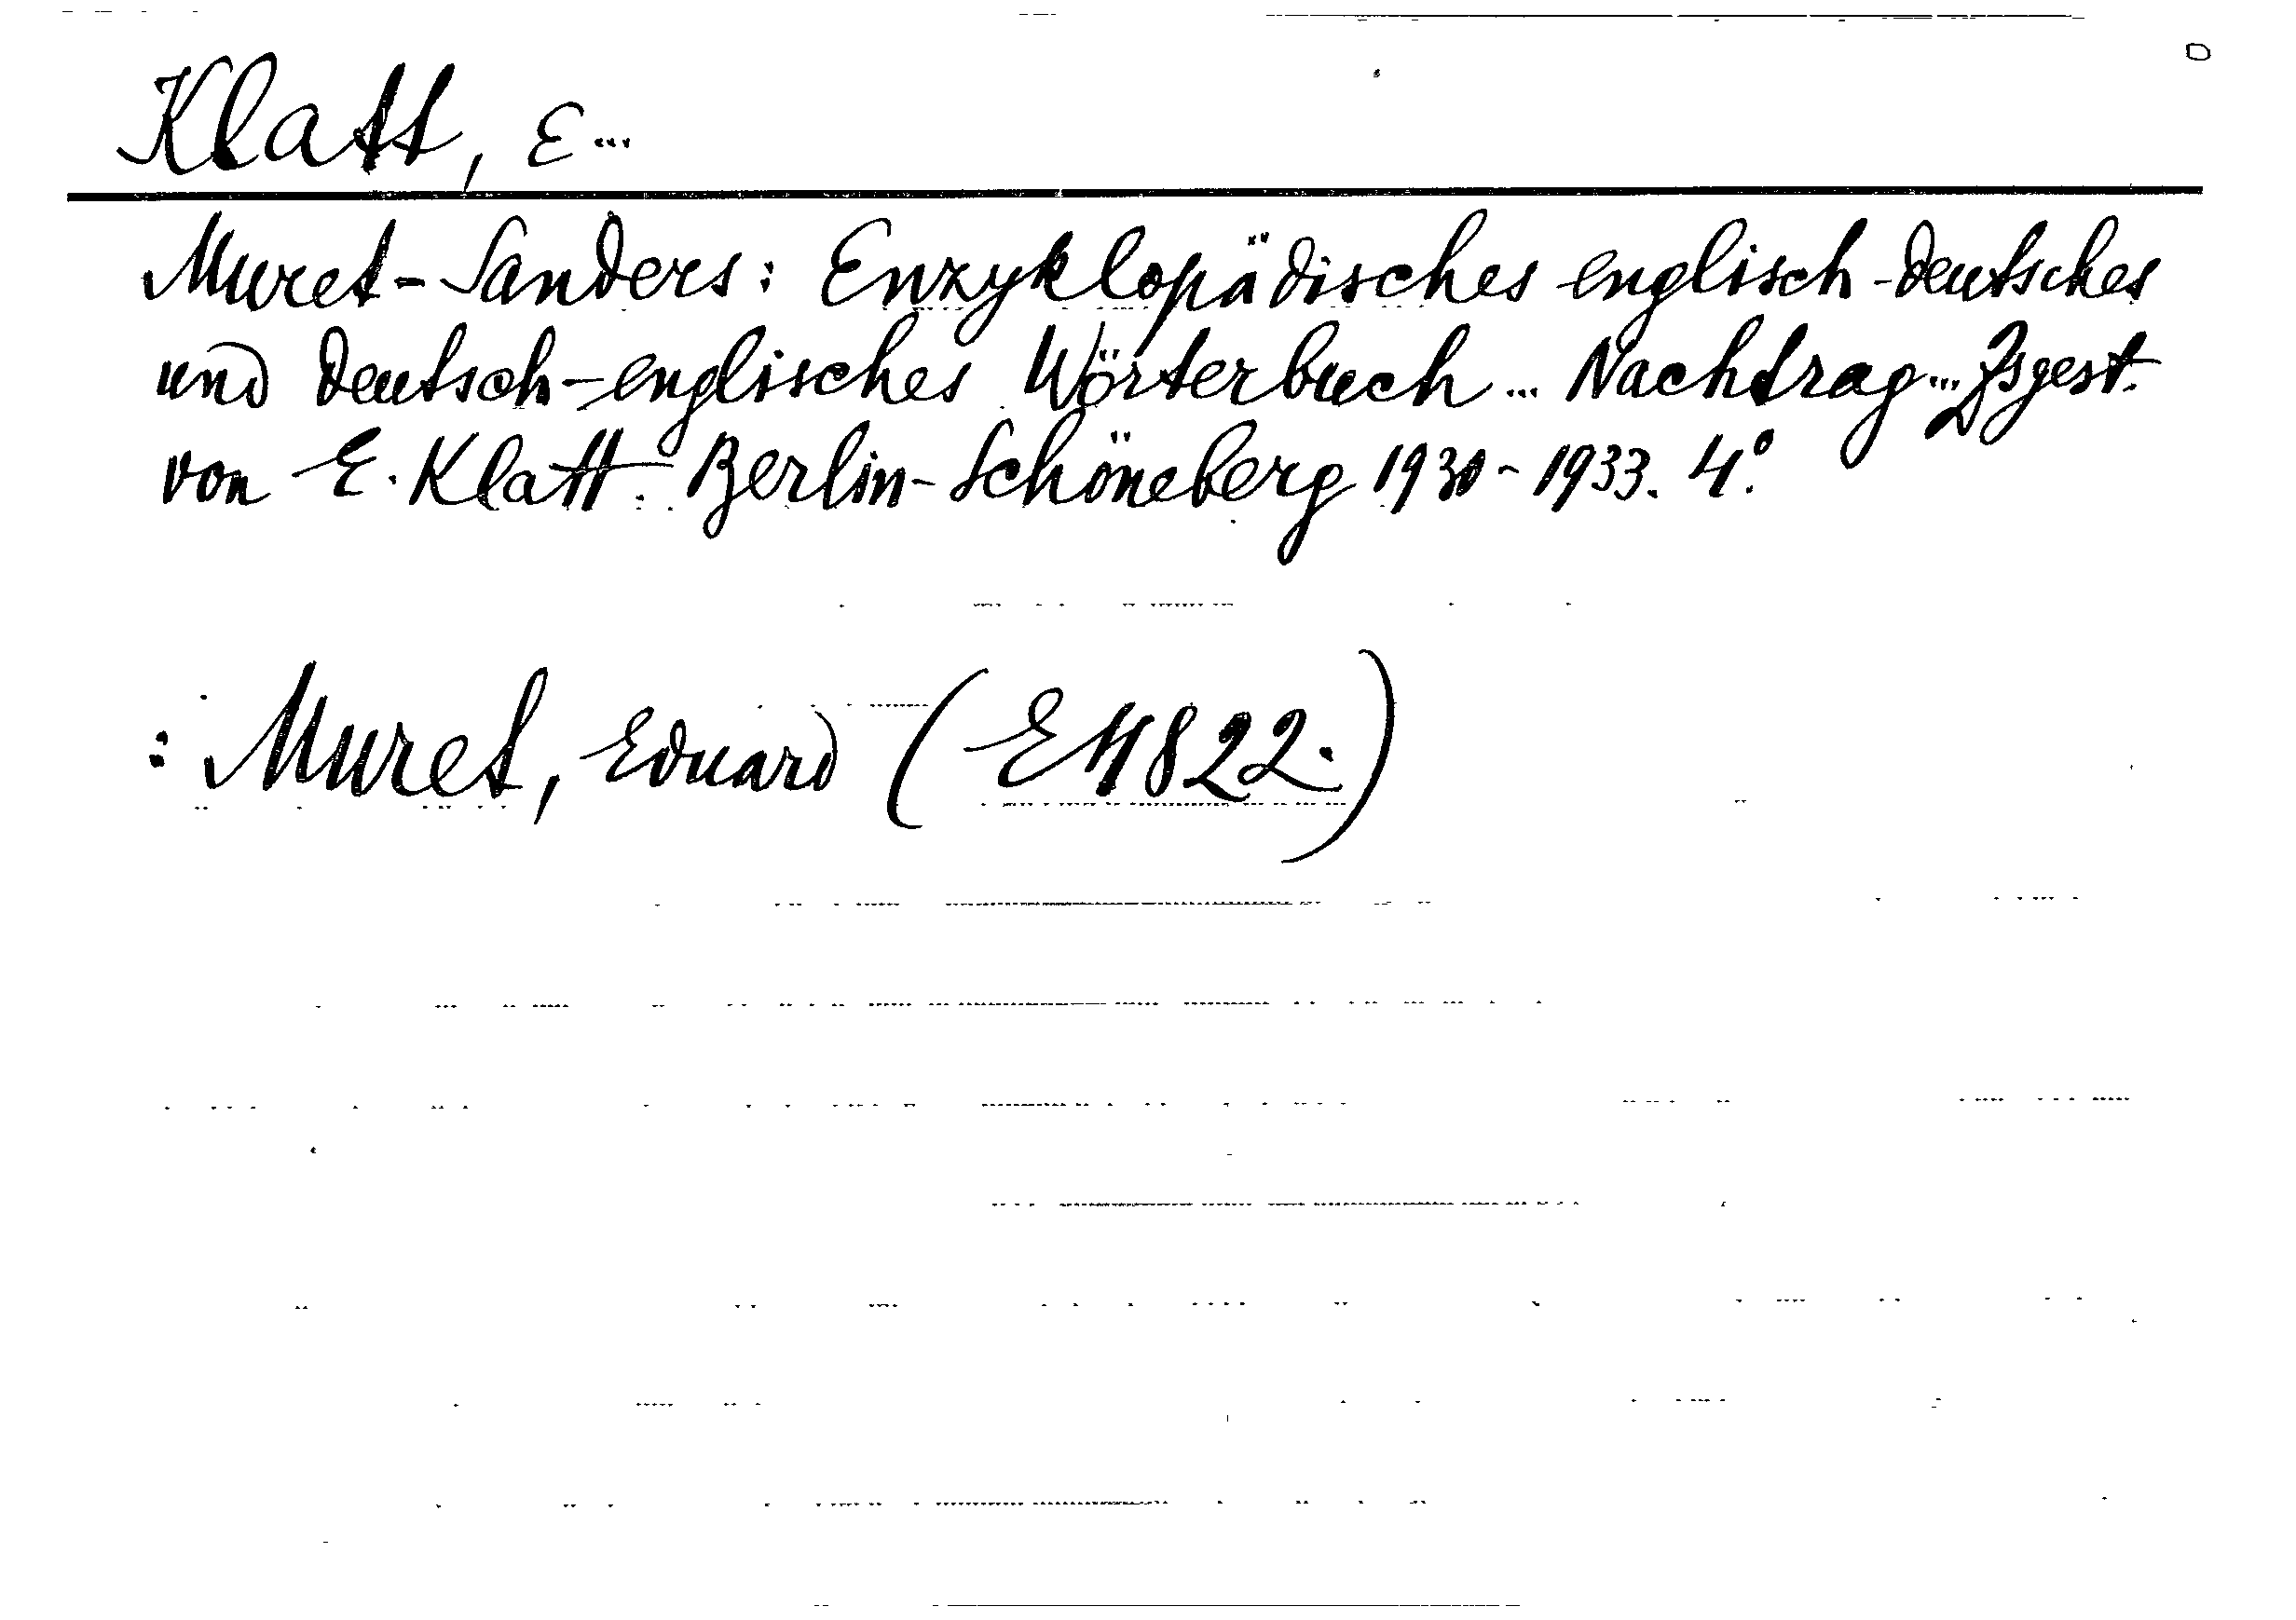 Klatt, E...
Muret-Sanders: Enzyklopädisches englisch-deutsches
und deutsch-englisches Wörterbuch... Nachtrag... Zsgest.
von E. Klatt. Berlin-Schöneberg 1930-1933. 4°.
: Muret, Eduard (E4822.)